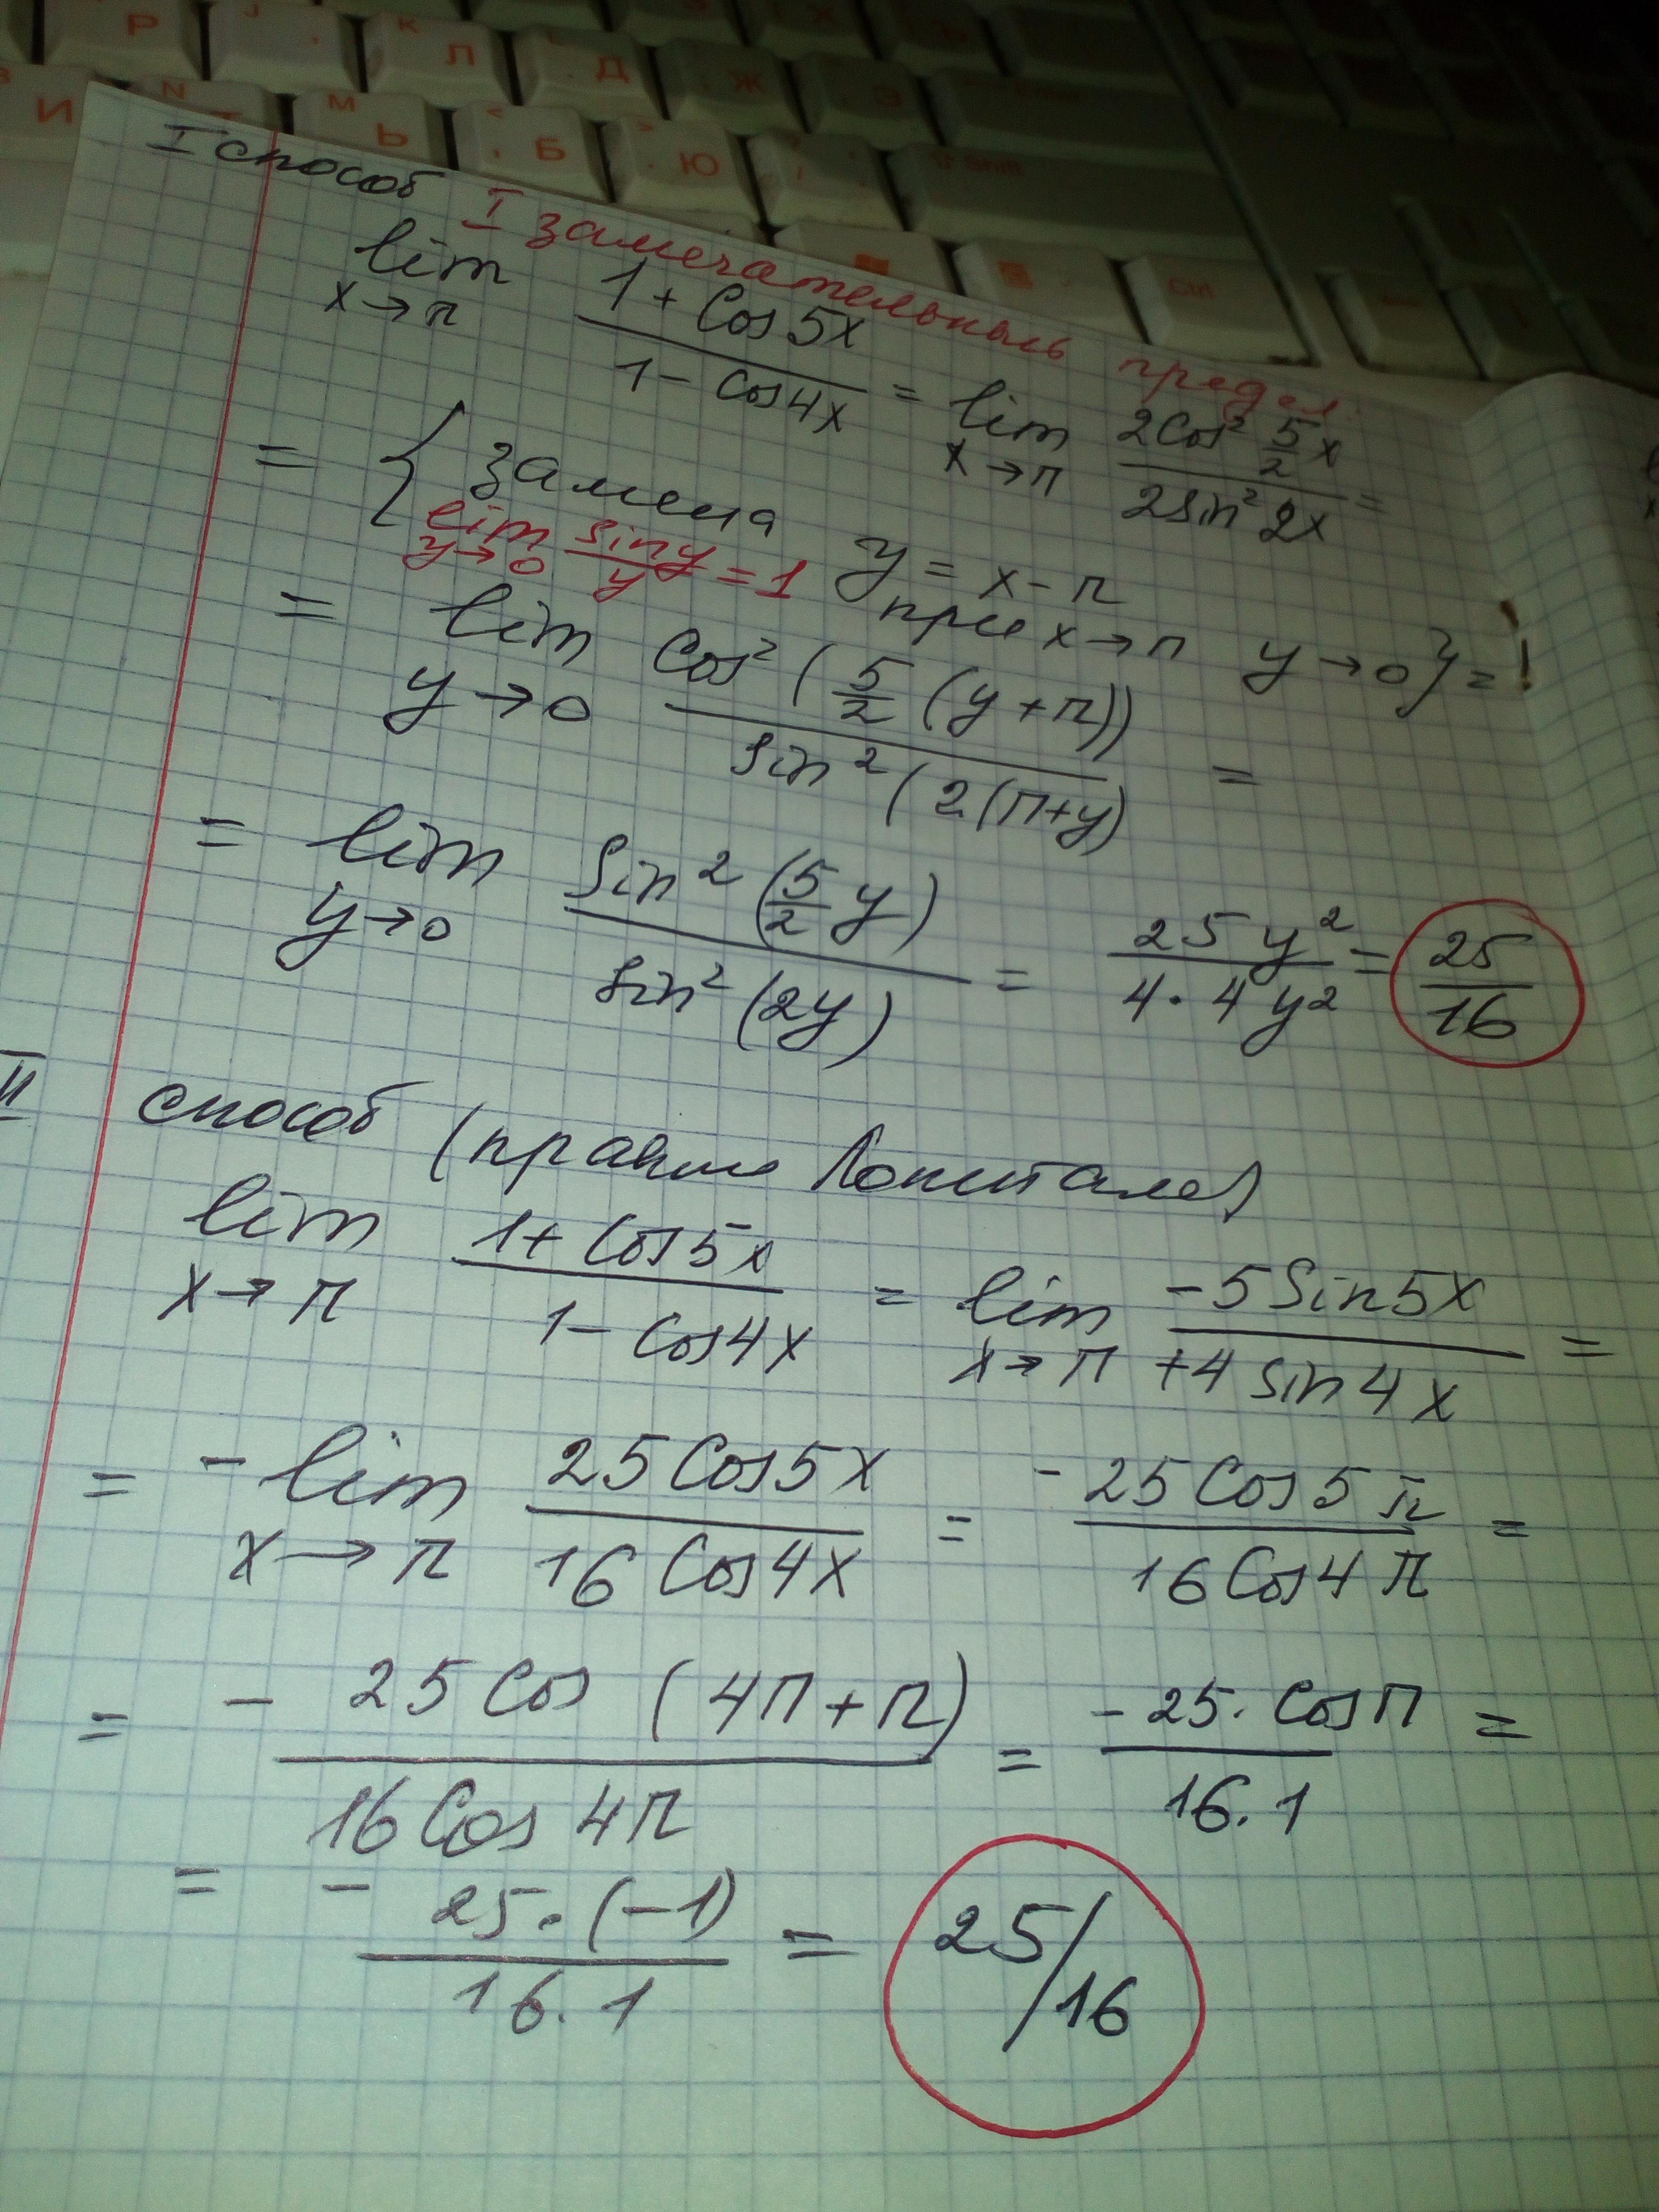 I способ I замечательный предел.
lim x→π (1 + Cos 5x)/(1 - Cos 4x) = lim x→π (2Cos² 5/2 x)/(2Sin² 2x) =
= { замена y = x - π
lim y→0 sin y / y = 1 при x→π y→0 } =
= lim y→0 Cos² (5/2 (y + π)) / Sin² (2(π+y) =
= lim y→0 Sin² (5/2 y) / Sin² (2y) = 25 y² / 4 · 4 y² = 25/16
II способ (правило Лопиталя)
lim x→π (1 + Cos 5x)/(1 - Cos 4x) = lim x→π -5 Sin 5x / +4 Sin 4x =
= - lim x→π 25 Cos 5x / 16 Cos 4x = - 25 Cos 5π / 16 Cos 4π =
= - 25 Cos (4π + π) / 16 Cos 4π = - 25 · Cos π / 16 · 1 =
= - 25 · (-1) / 16 · 1 = 25/16